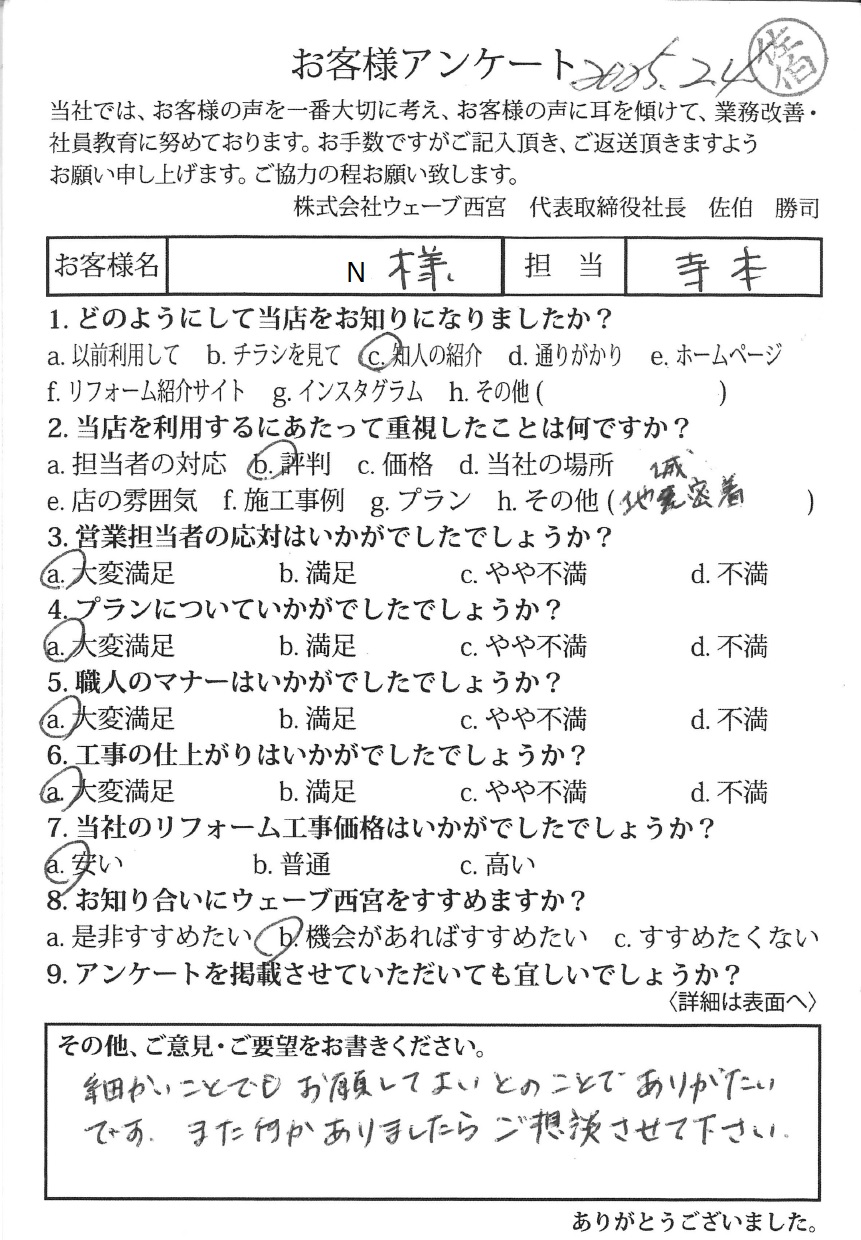 お客様アンケート 2025.2.4 佐伯
当社では、お客様の声を一番大切に考え、お客様の声に耳を傾けて、業務改善・
社員教育に努めております。お手数ですがご記入頂き、ご返送頂きますよう
お願い申し上げます。ご協力の程お願い致します。
株式会社ウェーブ西宮 代表取締役社長 佐伯 勝司
お客様名 N 様 担当 寺本
1. どのようにして当店をお知りになりましたか？
a. 以前利用して b. チラシを見て c. 知人の紹介 d. 通りがかり e. ホームページ
f. リフォーム紹介サイト g. インスタグラム h. その他 ( )
2. 当店を利用するにあたって重視したことは何ですか？
a. 担当者の対応 b. 評判 c. 価格 d. 当社の場所
e. 店の雰囲気 f. 施工事例 g. プラン h. その他 ( 地域密着 )
3. 営業担当者の応対はいかがでしたでしょうか？
a. 大変満足 b. 満足 c. やや不満 d. 不満
4. プランについていかがでしたでしょうか？
a. 大変満足 b. 満足 c. やや不満 d. 不満
5. 職人のマナーはいかがでしたでしょうか？
a. 大変満足 b. 満足 c. やや不満 d. 不満
6. 工事の仕上がりはいかがでしたでしょうか？
a. 大変満足 b. 満足 c. やや不満 d. 不満
7. 当社のリフォーム工事価格はいかがでしたでしょうか？
a. 安い b. 普通 c. 高い
8. お知り合いにウェーブ西宮をすすめますか？
a. 是非すすめたい b. 機会があればすすめたい c. すすめたくない
9. アンケートを掲載させていただいても宜しいでしょうか？
〈詳細は表面へ〉
その他、ご意見・ご要望をお書きください。
細かいことでもお願してよいとのことでありがたい
です。また何かありましたらご想談させて下さい。
ありがとうございました。